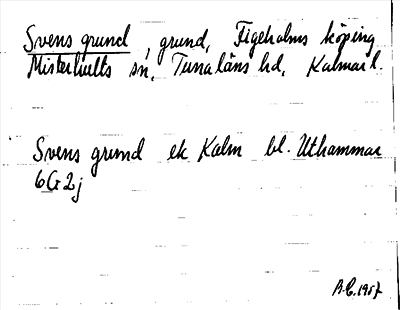 Svens grund, grund, Figeholms köping
Misterhults sn, Tunaläns hd, Kalmar l.
Svens grund ek Kalm bl. Uthammar
6G2j
B.C. 1957